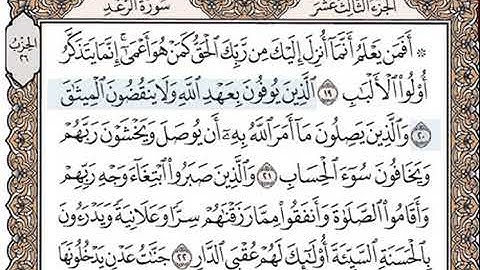 الجزء الثالث عشر
سورة الرعد
الحزب
٢٦
۞ أَفَمَن يَعْلَمُ أَنَّمَآ أُنزِلَ إِلَيْكَ مِن رَّبِّكَ ٱلْحَقُّ كَمَنْ هُوَ أَعْمَىٰٓ ۚ إِنَّمَا يَتَذَكَّرُ
أُو۟لُوا۟ ٱلْأَلْبَـٰبِ ١٩ ٱلَّذِينَ يُوفُونَ بِعَهْدِ ٱللَّهِ وَلَا يَنقُضُونَ ٱلْمِيثَـٰقَ
٢٠ وَٱلَّذِينَ يَصِلُونَ مَآ أَمَرَ ٱللَّهُ بِهِۦٓ أَن يُوصَلَ وَيَخْشَوْنَ رَبَّهُمْ
وَيَخَافُونَ سُوٓءَ ٱلْحِسَابِ ٢١ وَٱلَّذِينَ صَبَرُوا۟ ٱبْتِغَآءَ وَجْهِ رَبِّهِمْ
وَأَقَامُوا۟ ٱلصَّلَوٰةَ وَأَنفَقُوا۟ مِمَّا رَزَقْنَـٰهُمْ سِرًّا وَعَلَانِيَةً وَيَدْرَءُونَ
بِٱلْحَسَنَةِ ٱلسَّيِّئَةَ أُو۟لَـٰٓئِكَ لَهُمْ عُقْبَى ٱلدَّارِ ٢٢ جَنَّـٰتُ عَدْنٍ يَدْخُلُونَهَا